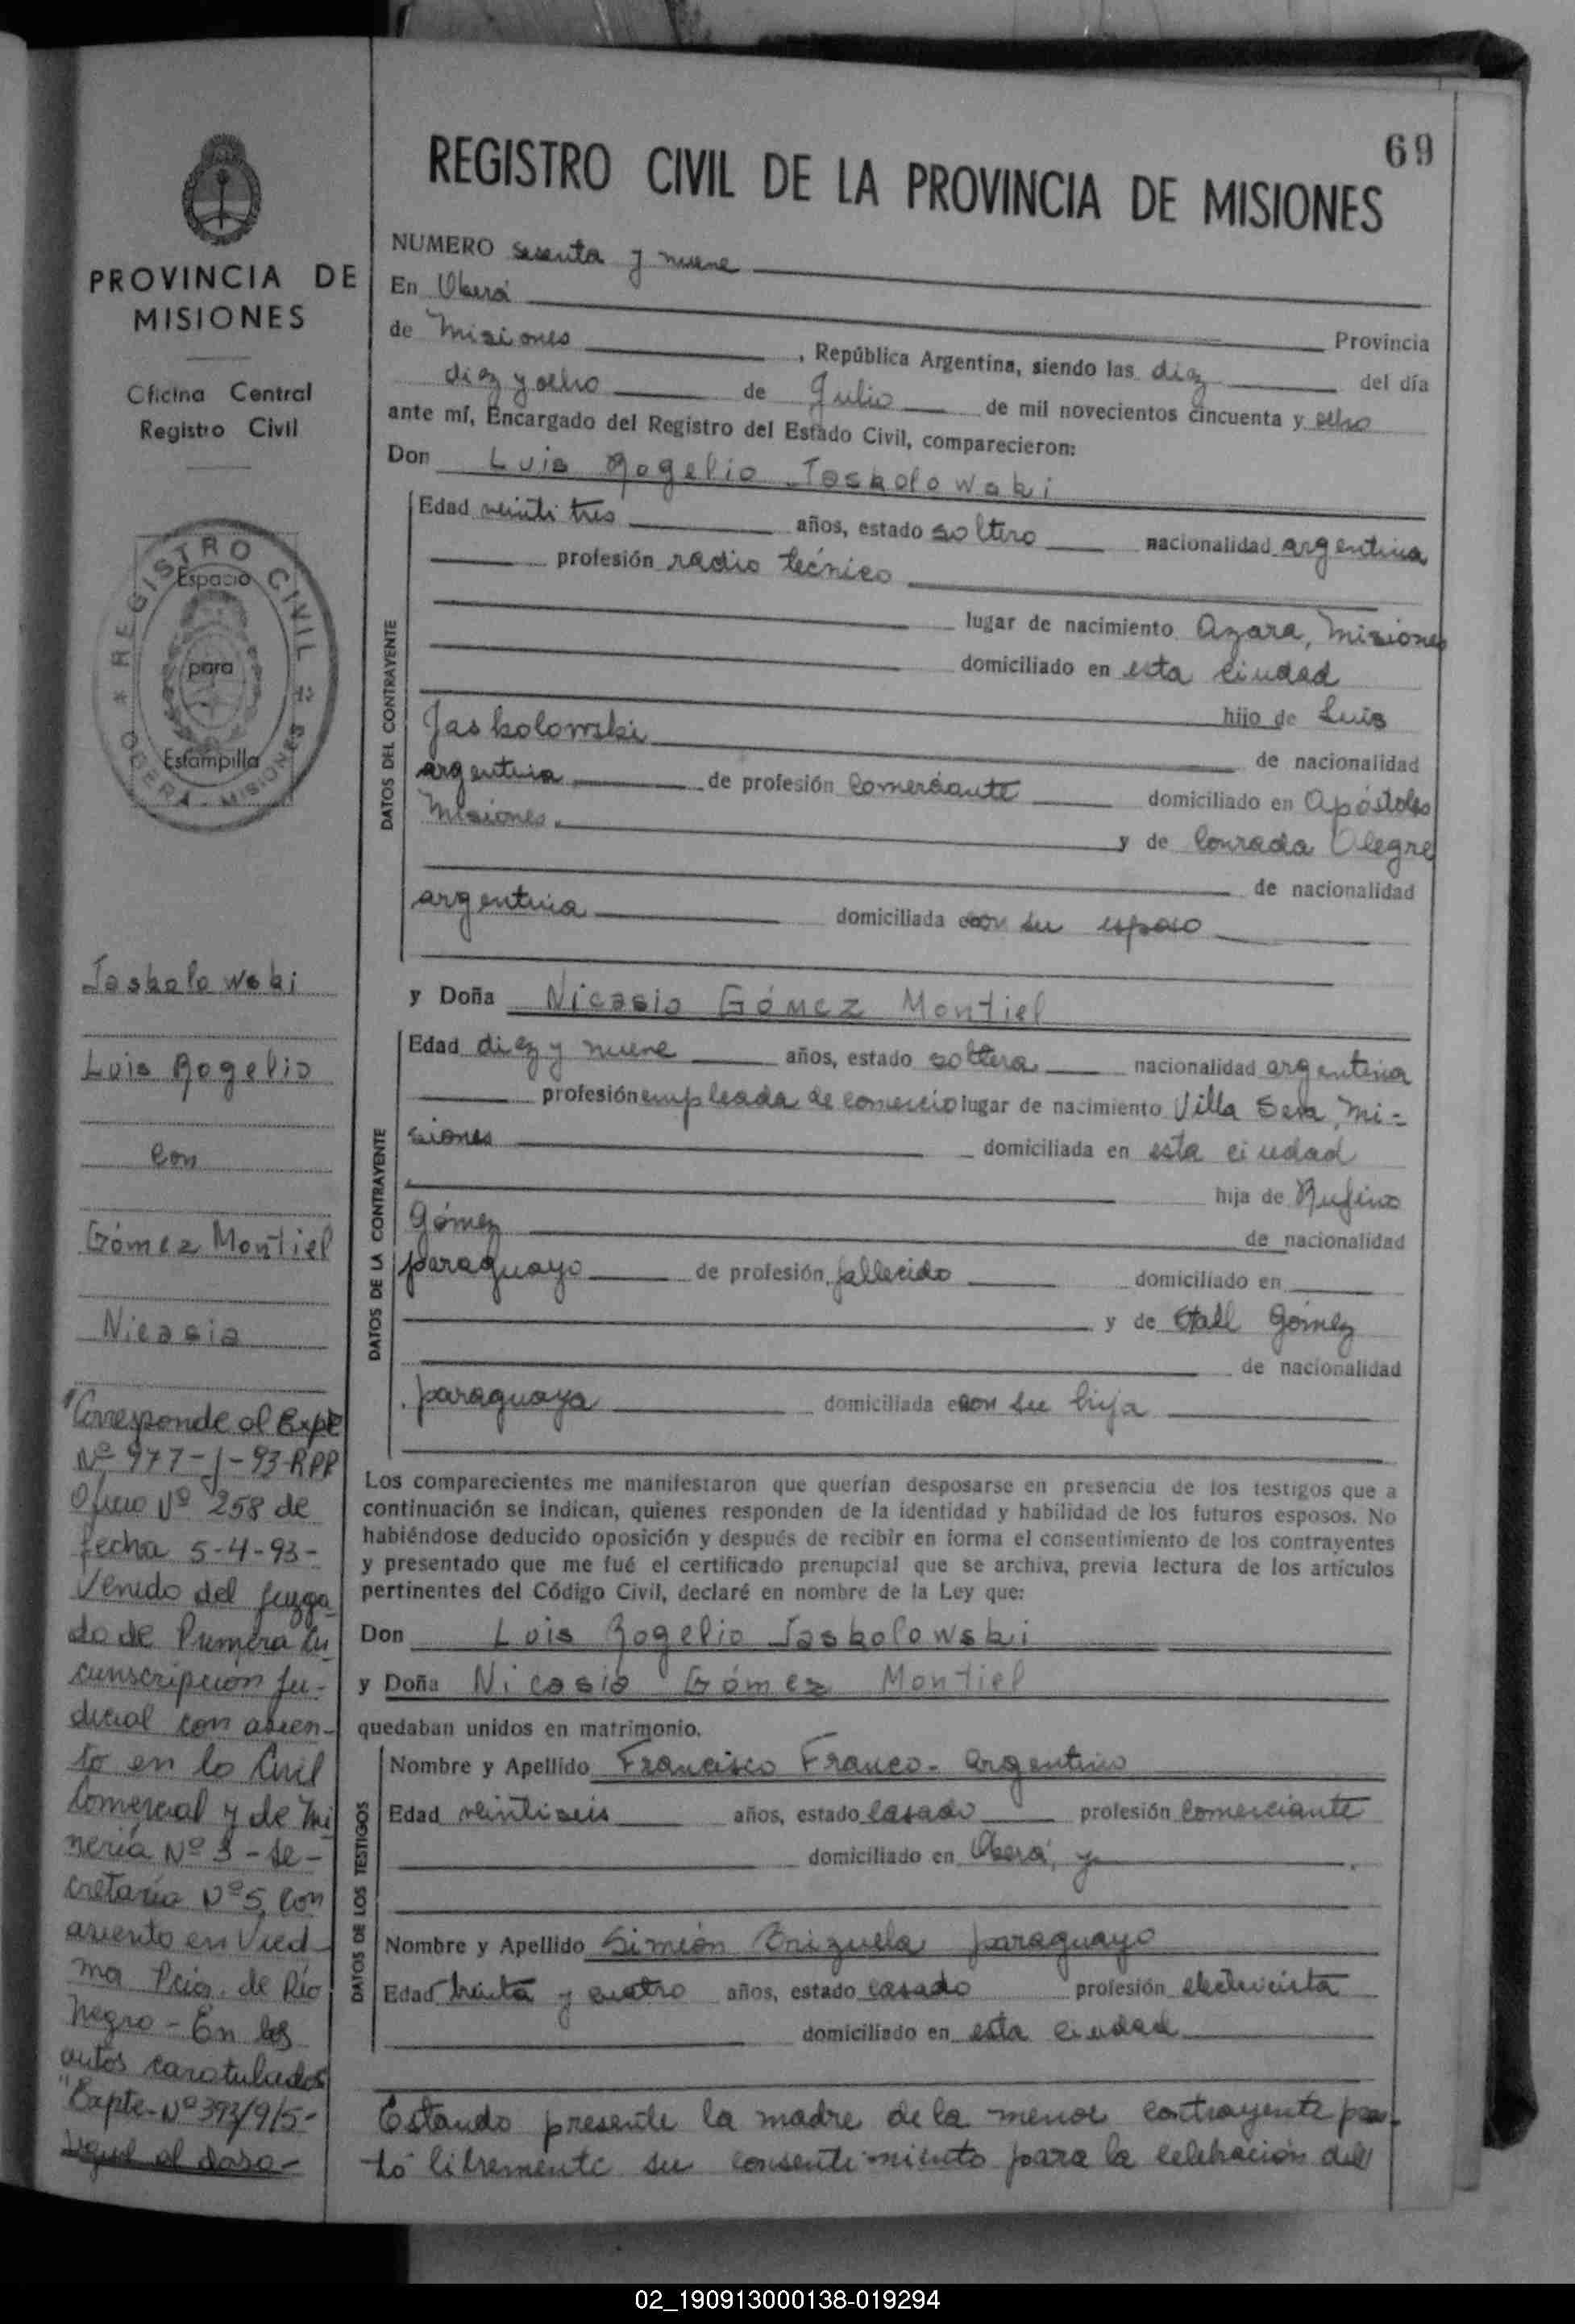 69
REGISTRO CIVIL DE LA PROVINCIA DE MISIONES
PROVINCIA DE
MISIONES
Oficina Central
Registro Civil
REGISTRO CIVIL
Espacio
para
Estampilla
OBERA - MISIONES
Jaskolowski
Luis Rogelio
con
Gómez Montiel
Nicasia
"Corresponde al Expte
Nº 977-J-93-RPP
Oficio Nº 258 de
fecha 5-4-93-
venido del Juzga
do de Primera Cir
cunscripción Ju-
dicial con asien-
to en lo Civil
Comercial y de Mi
nería Nº 3 - Se-
cretaría Nº 5, con
asiento en Vied
ma Pcia. de Río
Negro - En los
autos caratulados
"Expte-Nº 393/9/5-
NUMERO sesenta y nueve
En Oberá
Provincia
de Misiones, República Argentina, siendo las diez del día
diez y ocho de Julio de mil novecientos cincuenta y ocho
ante mí, Encargado del Registro del Estado Civil, comparecieron:
Don Luis Rogelio Jaskolowski
DATOS DEL CONTRAYENTE
Edad veinti tres años, estado soltero nacionalidad argentina
profesión radio técnico
lugar de nacimiento Azara, Misiones
domiciliado en esta ciudad
hijo de Luis
Jaskolowski de nacionalidad
argentina de profesión comerciante domiciliado en Apóstoles
Misiones. y de Conrada Alegre
de nacionalidad
argentina domiciliada con su esposo
y Doña Nicasia Gómez Montiel
DATOS DE LA CONTRAYENTE
Edad diez y nueve años, estado soltera nacionalidad argentina
profesión empleada de comercio lugar de nacimiento Villa Sena, Mi-
siones domiciliada en esta ciudad
hija de Rufino
Gómez de nacionalidad
paraguayo de profesión fallecido domiciliado en
y de Gómez
de nacionalidad
paraguaya domiciliada con su hija
Los comparecientes me manifestaron que querían desposarse en presencia de los testigos que a
continuación se indican, quienes responden de la identidad y habilidad de los futuros esposos. No
habiéndose deducido oposición y después de recibir en forma el consentimiento de los contrayentes
y presentado que me fué el certificado prenupcial que se archiva, previa lectura de los artículos
pertinentes del Código Civil, declaré en nombre de la Ley que:
Don Luis Rogelio Jaskolowski
y Doña Nicasia Gómez Montiel
quedaban unidos en matrimonio.
DATOS DE LOS TESTIGOS
Nombre y Apellido Francisco Franco - argentino
Edad veintiseis años, estado casado profesión comerciante
domiciliado en Oberá, y
Nombre y Apellido Simeón Brizuela paraguayo
Edad treinta y cuatro años, estado casado profesión electricista
domiciliado en esta ciudad
Estando presente la madre de la menor contrayente pres-
tó libremente su consentimiento para la celebración del
02_190913000138-019294